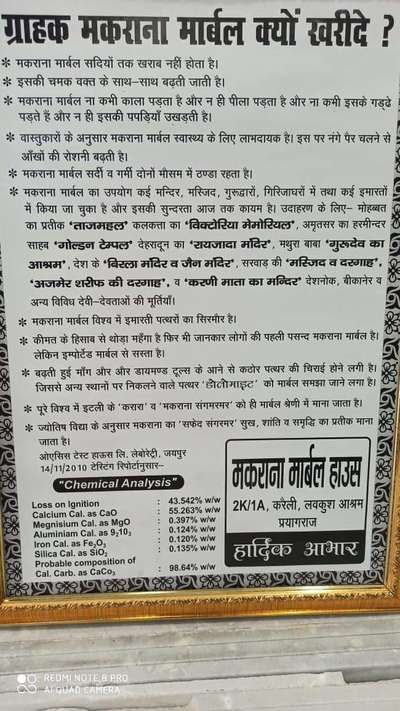 ग्राहक मकराना मार्बल क्यों खरीदे ?
* मकराना मार्बल सदियों तक खराब नहीं होता है।
* इसकी चमक वक्त के साथ-साथ बढ़ती जाती है।
* मकराना मार्बल ना कभी काला पड़ता है और न ही पीला पड़ता है और ना कभी इसके गड्ढे
पड़ते हैं और न ही इसकी पपड़ियाँ उखड़ती है।
* वास्तुकारों के अनुसार मकराना मार्बल स्वास्थ्य के लिए लाभदायक है। इस पर नंगे पैर चलने से
आँखों की रोशनी बढ़ती है।
* मकराना मार्बल सर्दी व गर्मी दोनों मौसम में ठण्डा रहता है।
* मकराना मार्बल का उपयोग कई मन्दिर, मस्जिद, गुरूद्वारों, गिरिजाघरों में तथा कई इमारतों
में किया जा चुका है और इसकी सुन्दरता आज तक कायम है। उदाहरण के लिए- मोहब्बत
का प्रतीक 'ताजमहल' कलकत्ता का 'विक्टोरिया मेमोरियल', अमृतसर का हरमीन्दर
साहब 'गोल्डन टेम्पल' देहरादून का 'रायजादा मंदिर', मथुरा बाबा 'गुरूदेव का
आश्रम', देश के 'बिरला मंदिर व जैन मंदिर', सरवाड़ की 'मस्जिद व दरगाह',
'अजमेर शरीफ की दरगाह', व 'करणी माता का मन्दिर' देशनोक, बीकानेर व
अन्य विविध देवी-देवताओं की मूर्तियाँ।
* मकराना मार्बल विश्व में इमारती पत्थरों का सिरमौर है।
* कीमत के हिसाब से थोड़ा महँगा है फिर भी जानकार लोगों की पहली पसन्द मकराना मार्बल है।
लेकिन इम्पोर्टेड मार्बल से सस्ता है।
* बढ़ती हुई माँग और और डायमण्ड टूल्स के आने से कठोर पत्थर की चिराई होने लगी है।
जिससे अन्य स्थानो पर निकलने वाले पत्थर 'डोलोमाइट' को मार्बल समझा जाने लगा है।
* पूरे विश्व में इटली के 'करारा' व 'मकराना संगमरमर' को ही मार्बल श्रेणी में माना जाता है।
* ज्योतिष विद्या के अनुसार मकराना का 'सफेद संगमरमर' सुख, शांति व समृद्धि का प्रतीक माना
जाता है।
ओएसिस टेस्ट हाऊस लि. लेबोरेट्री, जयपुर
14/11/2010 टेस्टिंग रिपोर्टानुसार-
"Chemical Analysis"
Loss on Ignition : 43.542% w/w
Calcium Cal. as CaO : 55.263% w/w
Megnisium Cal. as MgO : 0.397% w/w
Aluminiam Cal. as 9₂10₃ : 0.124% w/w
Iron Cal. as Fe₂O₃ : 0.120% w/w
Silica Cal. as SiO₂ : 0.135% w/w
Probable composition of
Cal. Carb. as CaCo₃ : 98.64% w/w
मकराना मार्बल हाउस
2K/1A, करैली, लवकुश आश्रम
प्रयागराज
हार्दिक आभार
REDMI NOTE 8 PRO
AI QUAD CAMERA